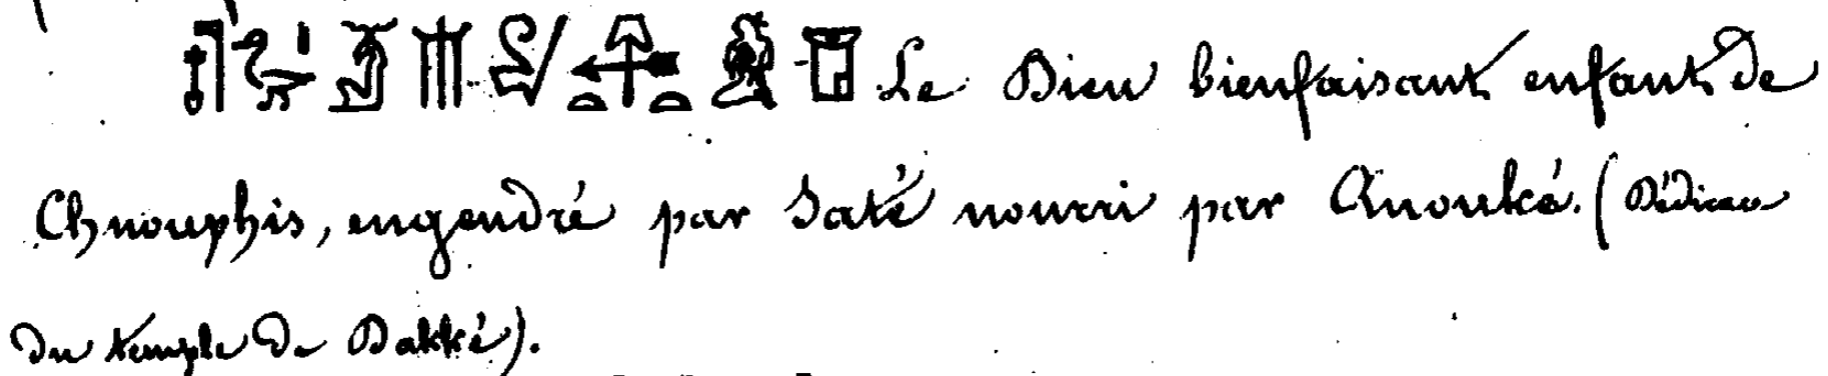 Le Dieu bienfaisant enfant de
Chnouphis, engendré par Saté nourri par Anouké. (Dédicace
du temple de Dakké).